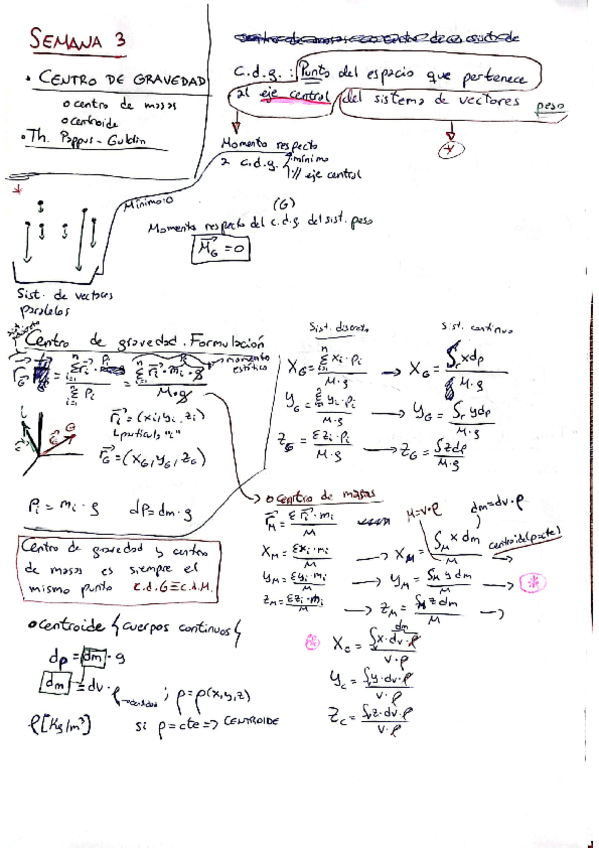 SEMANA 3
• CENTRO DE GRAVEDAD
o centro de masas
o centroide
• Th. Pappus-Guldin
c.d.g.: Punto del espacio que pertenece
al eje central del sistema de vectores peso
*
Momento respecto
a c.d.g. mínimo
// eje central
*
Mínimo: 0
(G)
Momento respecto del c.d.g. del sist. peso
M_G = 0
Sist. de vectores
paralelos
Centro de gravedad. Formulación
momento
estático
M·g
r_i = (x_i, y_i, z_i)
partícula "i"
r_G = (X_G, Y_G, Z_G)
P_i = m_i · g dP = dm · g
Sist. discreto
Sist. continuo
X_G = Σ x_i · p_i / M·g → X_G = ∫ x dp / M·g
Y_G = Σ y_i · p_i / M·g → Y_G = ∫ y dp / M·g
Z_G = Σ z_i · p_i / M·g → Z_G = ∫ z dp / M·g
o centro de masas
r_M = Σ r_i · m_i / M
M = V·ρ
dm = dv·ρ
X_M = Σ x_i · m_i / M → X_M = ∫_M x dm / M
Y_M = Σ y_i · m_i / M → Y_M = ∫_M y dm / M → *
Z_M = Σ z_i · m_i / M → Z_M = ∫_M z dm / M →
Centro de gravedad y centro
de masas es siempre el
mismo punto c.d.G ≡ c.d.M.
o centroide { cuerpos continuos }
dp = dm · g
dm ≡ dv · ρ → densidad ; ρ = ρ(x,y,z)
ρ [Kg/m³] si ρ = cte => CENTROIDE
dm
* X_c = ∫ x · dv · ρ / V · ρ
Y_c = ∫ y · dv · ρ / V · ρ
Z_c = ∫ z · dv · ρ / V · ρ